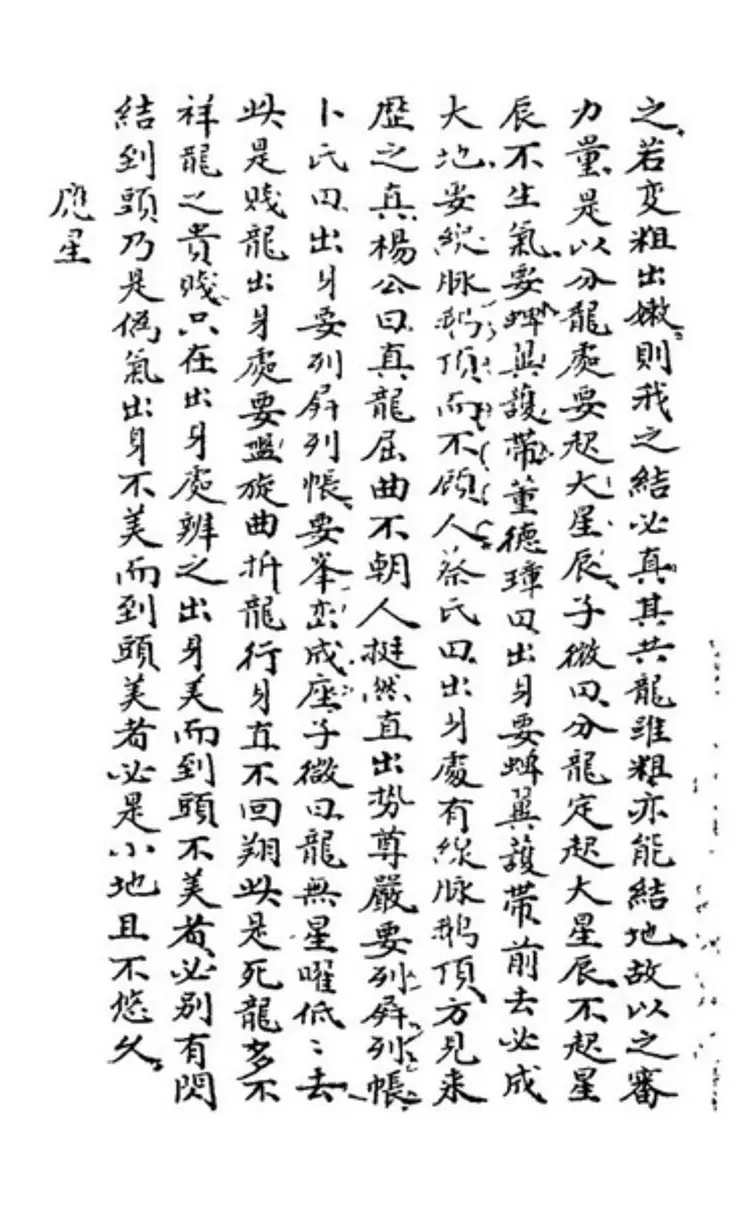 之若变粗出嫩則我之結必真其共龍雖粗亦能結地故以之審
力量是以分龍處要起大星辰子微曰分龍定起大星辰不起星
辰不生氣要蟬翼護帶董德璋曰出身要蟬翼護帶前去必成
大地要線脉鵝頂而不顧人蔡氏曰出身處有線脉鵝頂方見来
歴之真楊公曰真龍屈曲不朝人挺然直出势尊嚴要列屏列帳
卜氏曰出身要列屏列帳要峯巒成座子微曰龍無星曜低〻去
此是贱龍出身處要盤旋曲折龍行身直不回翔此是死龍多不
祥龍之貴贱只在出身處辨之出身美而到頭不美者必别有閃
結到頭乃是偽氣出身不美而到頭美者必是小地且不悠久
應星